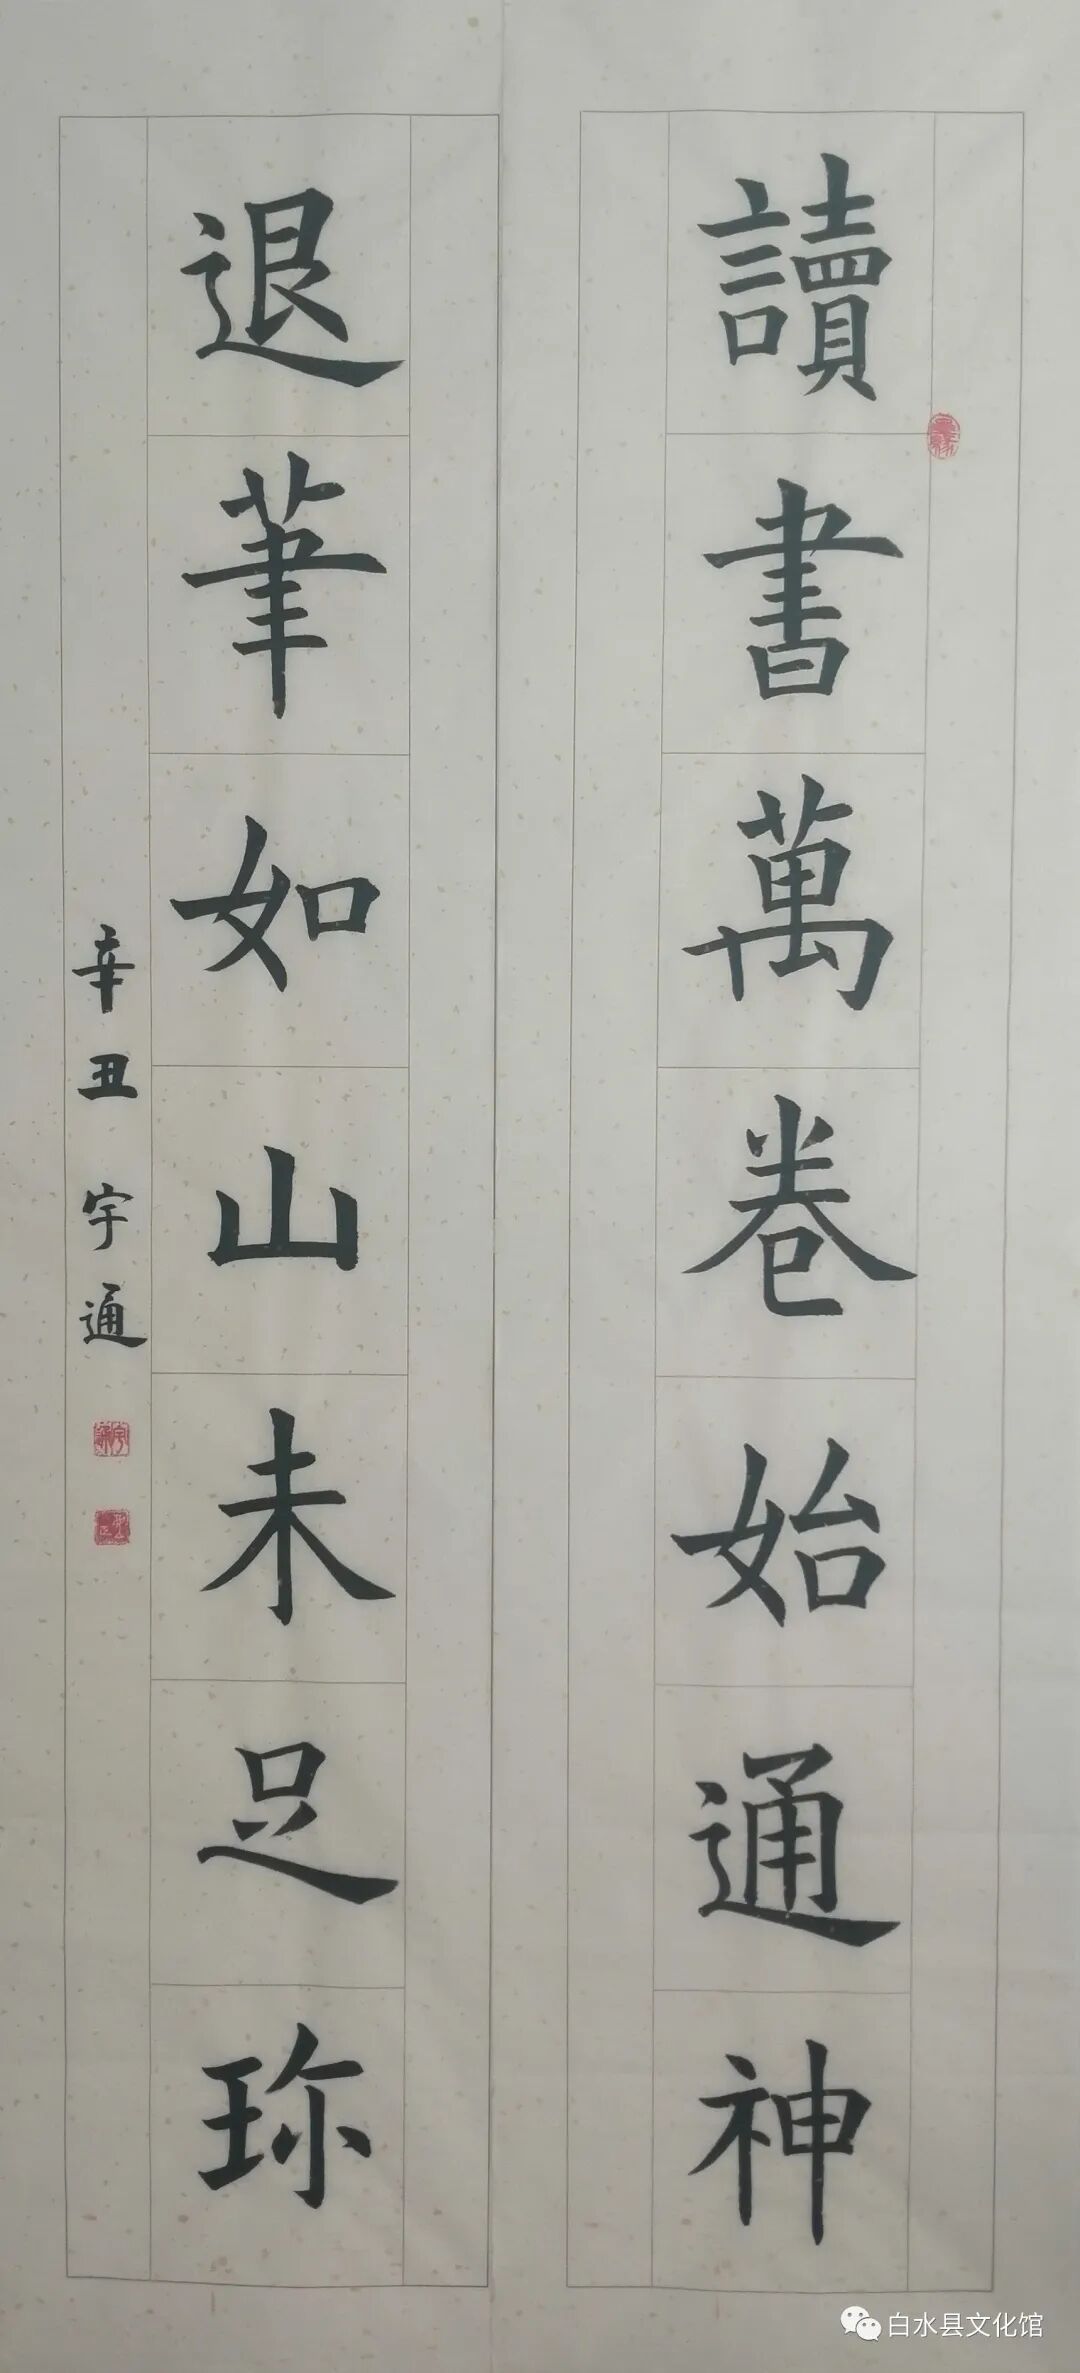 讀書萬卷始通神
退筆如山未足珎
辛丑 宇通
白水县文化馆